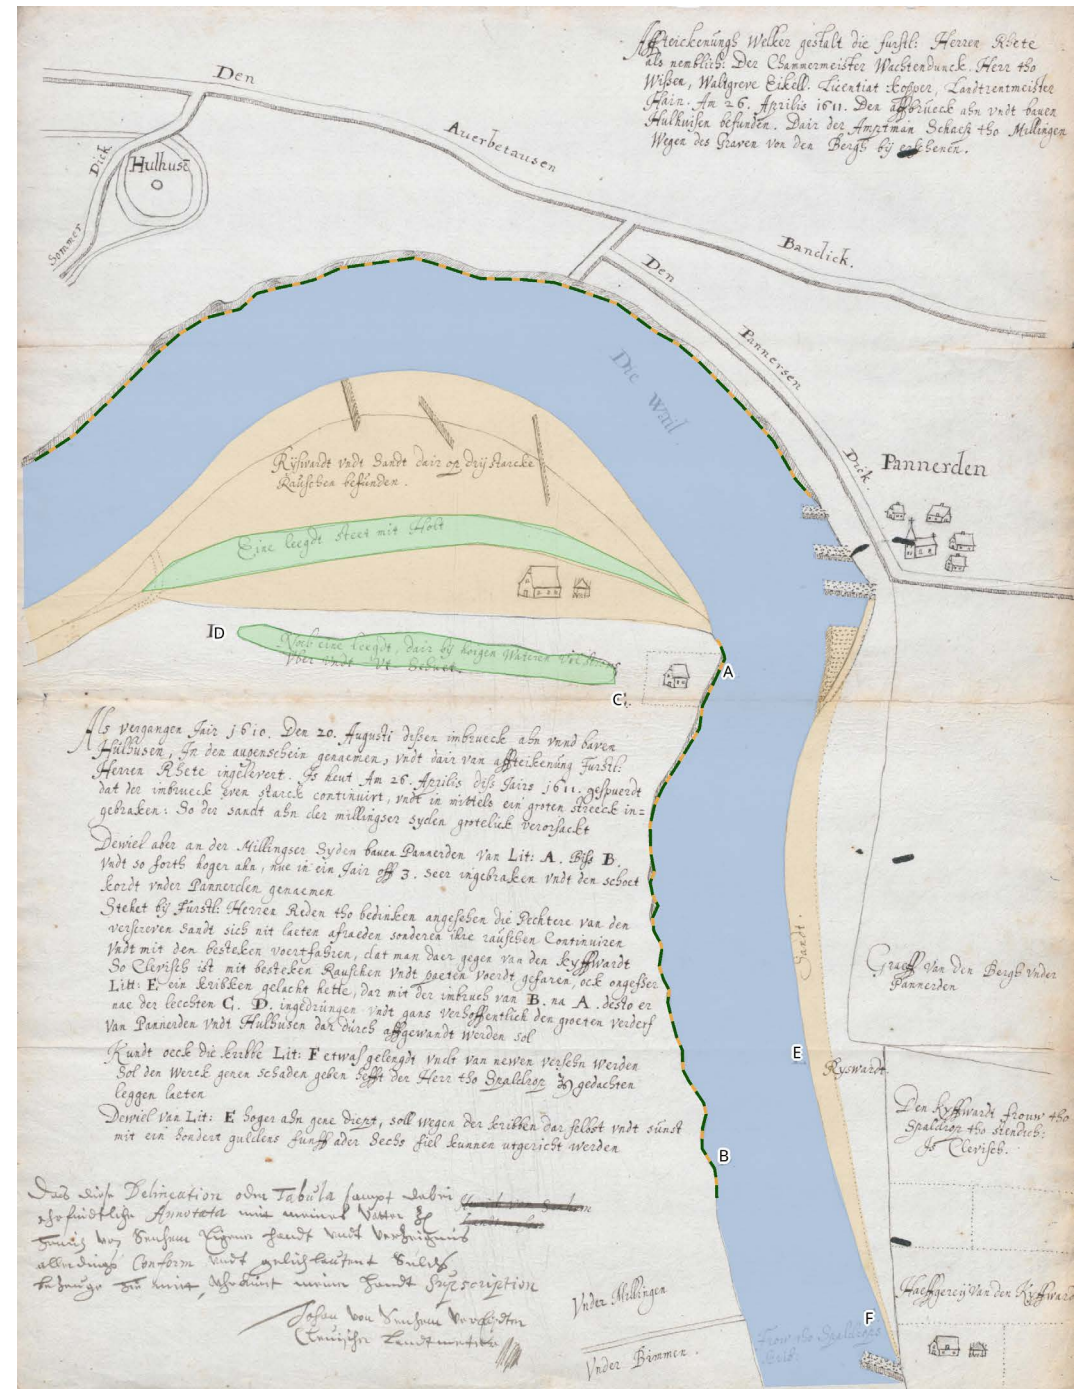 Affteickenungh Welker gestalt die furstl: Herren Rhete
als nemblich: Der Chammermeister Wachtendunck. Herr tho
Wißen, Waltgreve Eikell. Licentiat kopper, Landtrentmeister
Hain. Am 26. Aprilis 1611. Den affbrueck ahn vndt bauen
Hulhuisen befunden. Dair der Amptman Schaeß tho Millingen
Wegen des Graven von den Bergh bÿ erschenen.
Den
Auerbetausen
Bandick.
Hulhusē
Sommer Dick
Den
Pannersen
Dick.
Die Wail
Pannerden
Rÿswardt vndt Sandt dair op drÿ starcke
Rauschen befunden.
Eine leegdt steet mit Holt
D
Noch eine leegdt, dair bÿ hogen Wateren
vber vndt vt
A
C.
Als vergangen Jair 1610. Den 20. Augusti dessen imbrueck ahn vnnd baven
Hulhusen, In den augenschein genaemen, vndt dair van affteikenung Furstl:
Herren Rhete ingelevert. Is heut Am 26. Aprilis diss Jairs 1611. gespuerdt
dat der imbrueck even starck continuirt, vndt in mittels ein groten streeck in=
gebraken: So der sandt ahn der millingser syden grotelick verorsackt
Dewiel aber an der Millingser Syden bauen Pannerden van Lit: A. Biss B.
vndt so forth hoger ahn, nue in ein Jair off 3. seer ingebraken vndt den schoet
kordt vnder Pannerden genaemen
Stehet bÿ Furstl: Herren Reden tho bedinken angesehen die Pechtere van den
verscreven Sandt sich nit laeten afraeden sonderen ihre rauschen Continuiren
vndt mit den besteken voertfahren, dat man daer gegen van den kyffwardt
So Clevisch ist mit besteken Rauschen vndt paeten voerdt gefaren, ock ongefser
Litt: E ein kribben gelacht hette, dar mit der imbruch van B. na A. desto er
nae der leechten C. D. ingedrungen vndt gans verhoffentlich den groeten verderf
van Pannerden vndt Hulhusen dar durch affgewandt werden sol
Kundt oeck die kribbe Lit: F etwas gelengdt vndt van newen versehn werden
Sol den Werck genen schaden geben hefft den Herr tho Spaldrop gedachten
leggen laeten
Dewiel van Lit: E hoger ahn gene diept, soll wegen der kribben dar selbst vndt sunst
mit ein hondert guldens funff ader Sechs fiel kunnen utgericht werden
Sandt.
Graeff van den Bergh vnder
Pannerden
E
Ryswardt
Den kyffwardt frouw tho
Spaldrop tho stendeh:
Is Clevisch.
B
Das diese Delineation oder Tabula sampt dabei
Annotata mit meines Vatter
Henrich von Senhem Eigener handt vndt
allerdings Conform vndt gelichlautent
bezeuge meiner handt Subscription
Johan von Senhem
Clevischer Landtmeter
Vnder Millingen
Vnder Bimmen.
F
Frow tho Spaldrops
krib:
Haeffgereÿ van den Kyffward